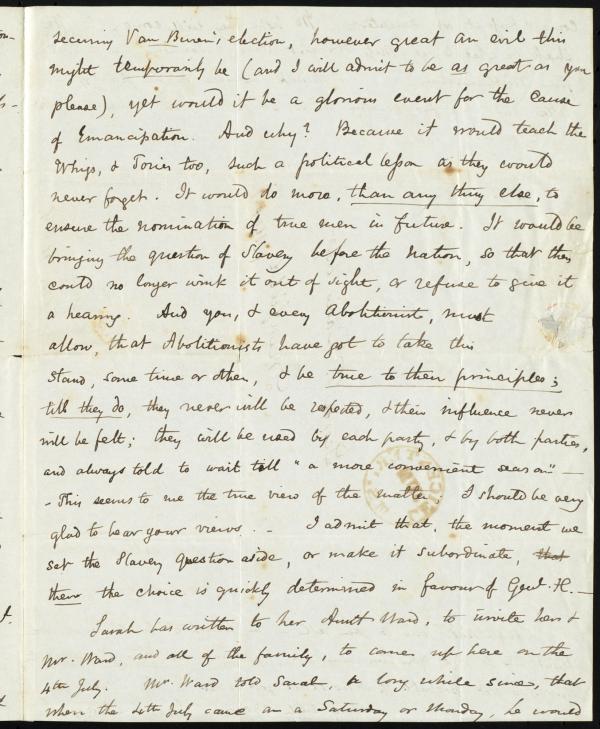 securing Van Buren's election, however great an evil this
might temporarily be (and I will admit to be as great as you
please), yet would it be a glorious event for the cause
of Emancipation. And why? Because it would teach the
Whigs, & Tories too, such a political lesson as they would
never forget. It would do more, than any thing else, to
ensure the nomination of true men in future. It would be
bringing the question of Slavery before the nation, so that they
could no longer wink it out of sight, or refuse to give it
a hearing. And you, & every Abolitionist, must
allow, that Abolitionists have got to take this
stand, some time or other, & be true to their principles;
till they do, they never will be respected, & their influence never
will be felt; they will be used by each party, & by both parties,
and always told to wait till "a more convenient season" —
- This seems to me the true view of the matter. I should be very
glad to hear your views. - I admit that, the moment we
set the Slavery question aside, or make it subordinate, that
then the choice is quickly determined in favour of Genl. H. —
Sarah has written to her Aunt Ward, to invite her &
Mr. Ward, and all of the family, to come up here on the
4th July. Mr. Ward told Sarah, a long while since, that
when the 4th July came on a Saturday or Monday, he would